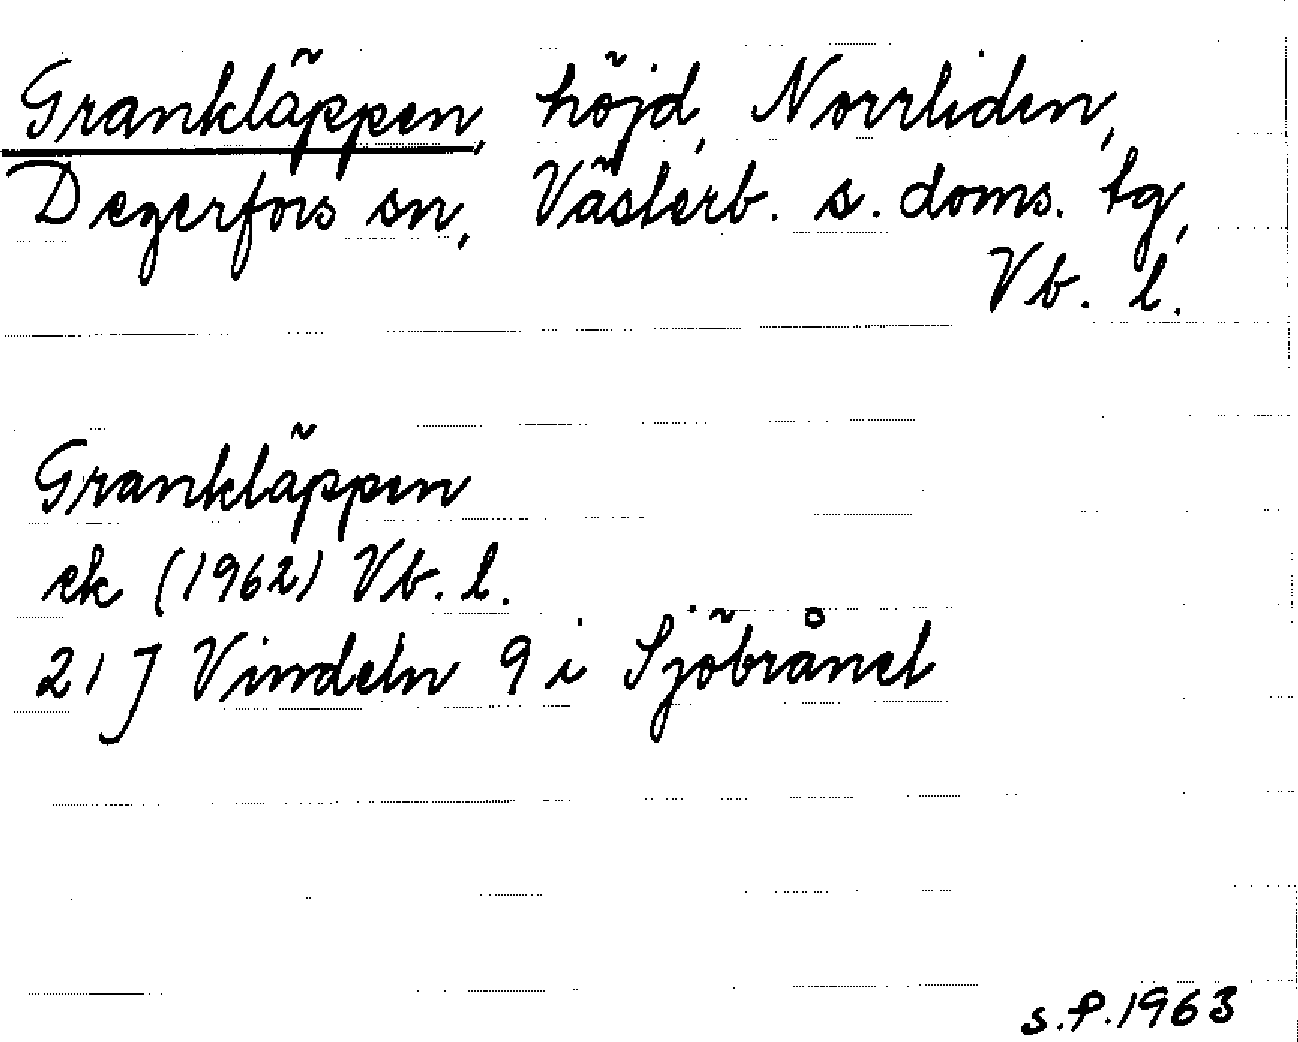 Grankläppen, höjd, Norrliden,
Degerfors sn, Västerb. s. doms. tg,
Vb. l.
Grankläppen
ek (1962) Vb. l.
21 J Vindeln 9 i Sjöbrånet
s.f. 1963